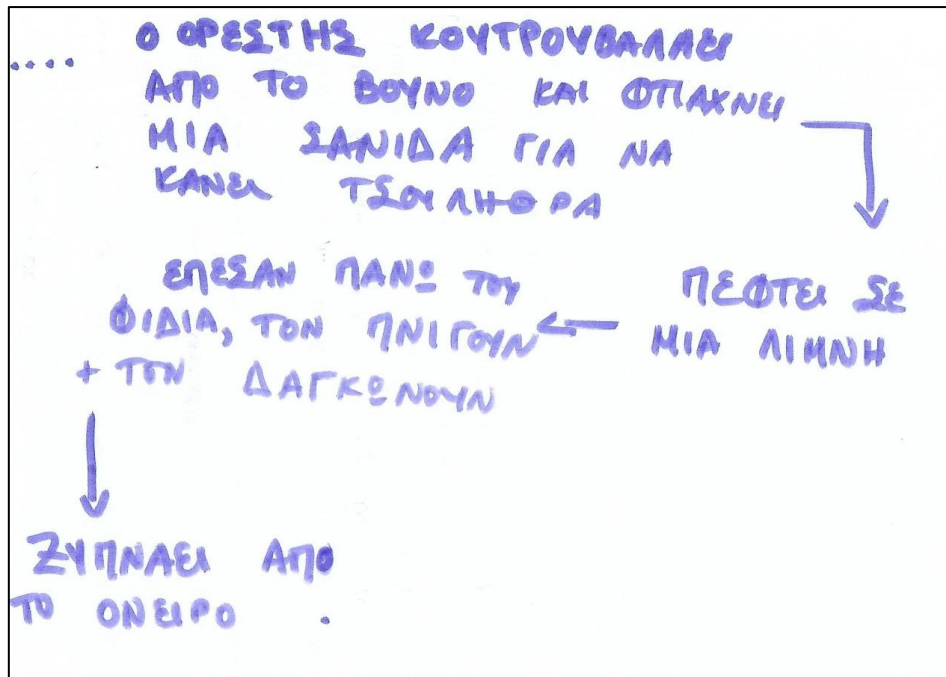 .... Ο ΟΡΕΣΤΗΣ ΚΟΥΤΡΟΥΒΑΛΑΕΙ
ΑΠΟ ΤΟ ΒΟΥΝΟ ΚΑΙ ΦΤΙΑΧΝΕΙ
ΜΙΑ ΣΑΝΙΔΑ ΓΙΑ ΝΑ
ΚΑΝΕΙ ΤΣΟΥΛΗΘΡΑ
ΠΕΦΤΕΙ ΣΕ
ΜΙΑ ΛΙΜΝΗ
ΕΠΕΣΑΝ ΠΑΝΩ ΤΟΥ
ΦΙΔΙΑ, ΤΟΝ ΠΝΙΓΟΥΝ
+ ΤΟΝ ΔΑΓΚΩΝΟΥΝ
ΞΥΠΝΑΕΙ ΑΠΟ
ΤΟ ΟΝΕΙΡΟ .